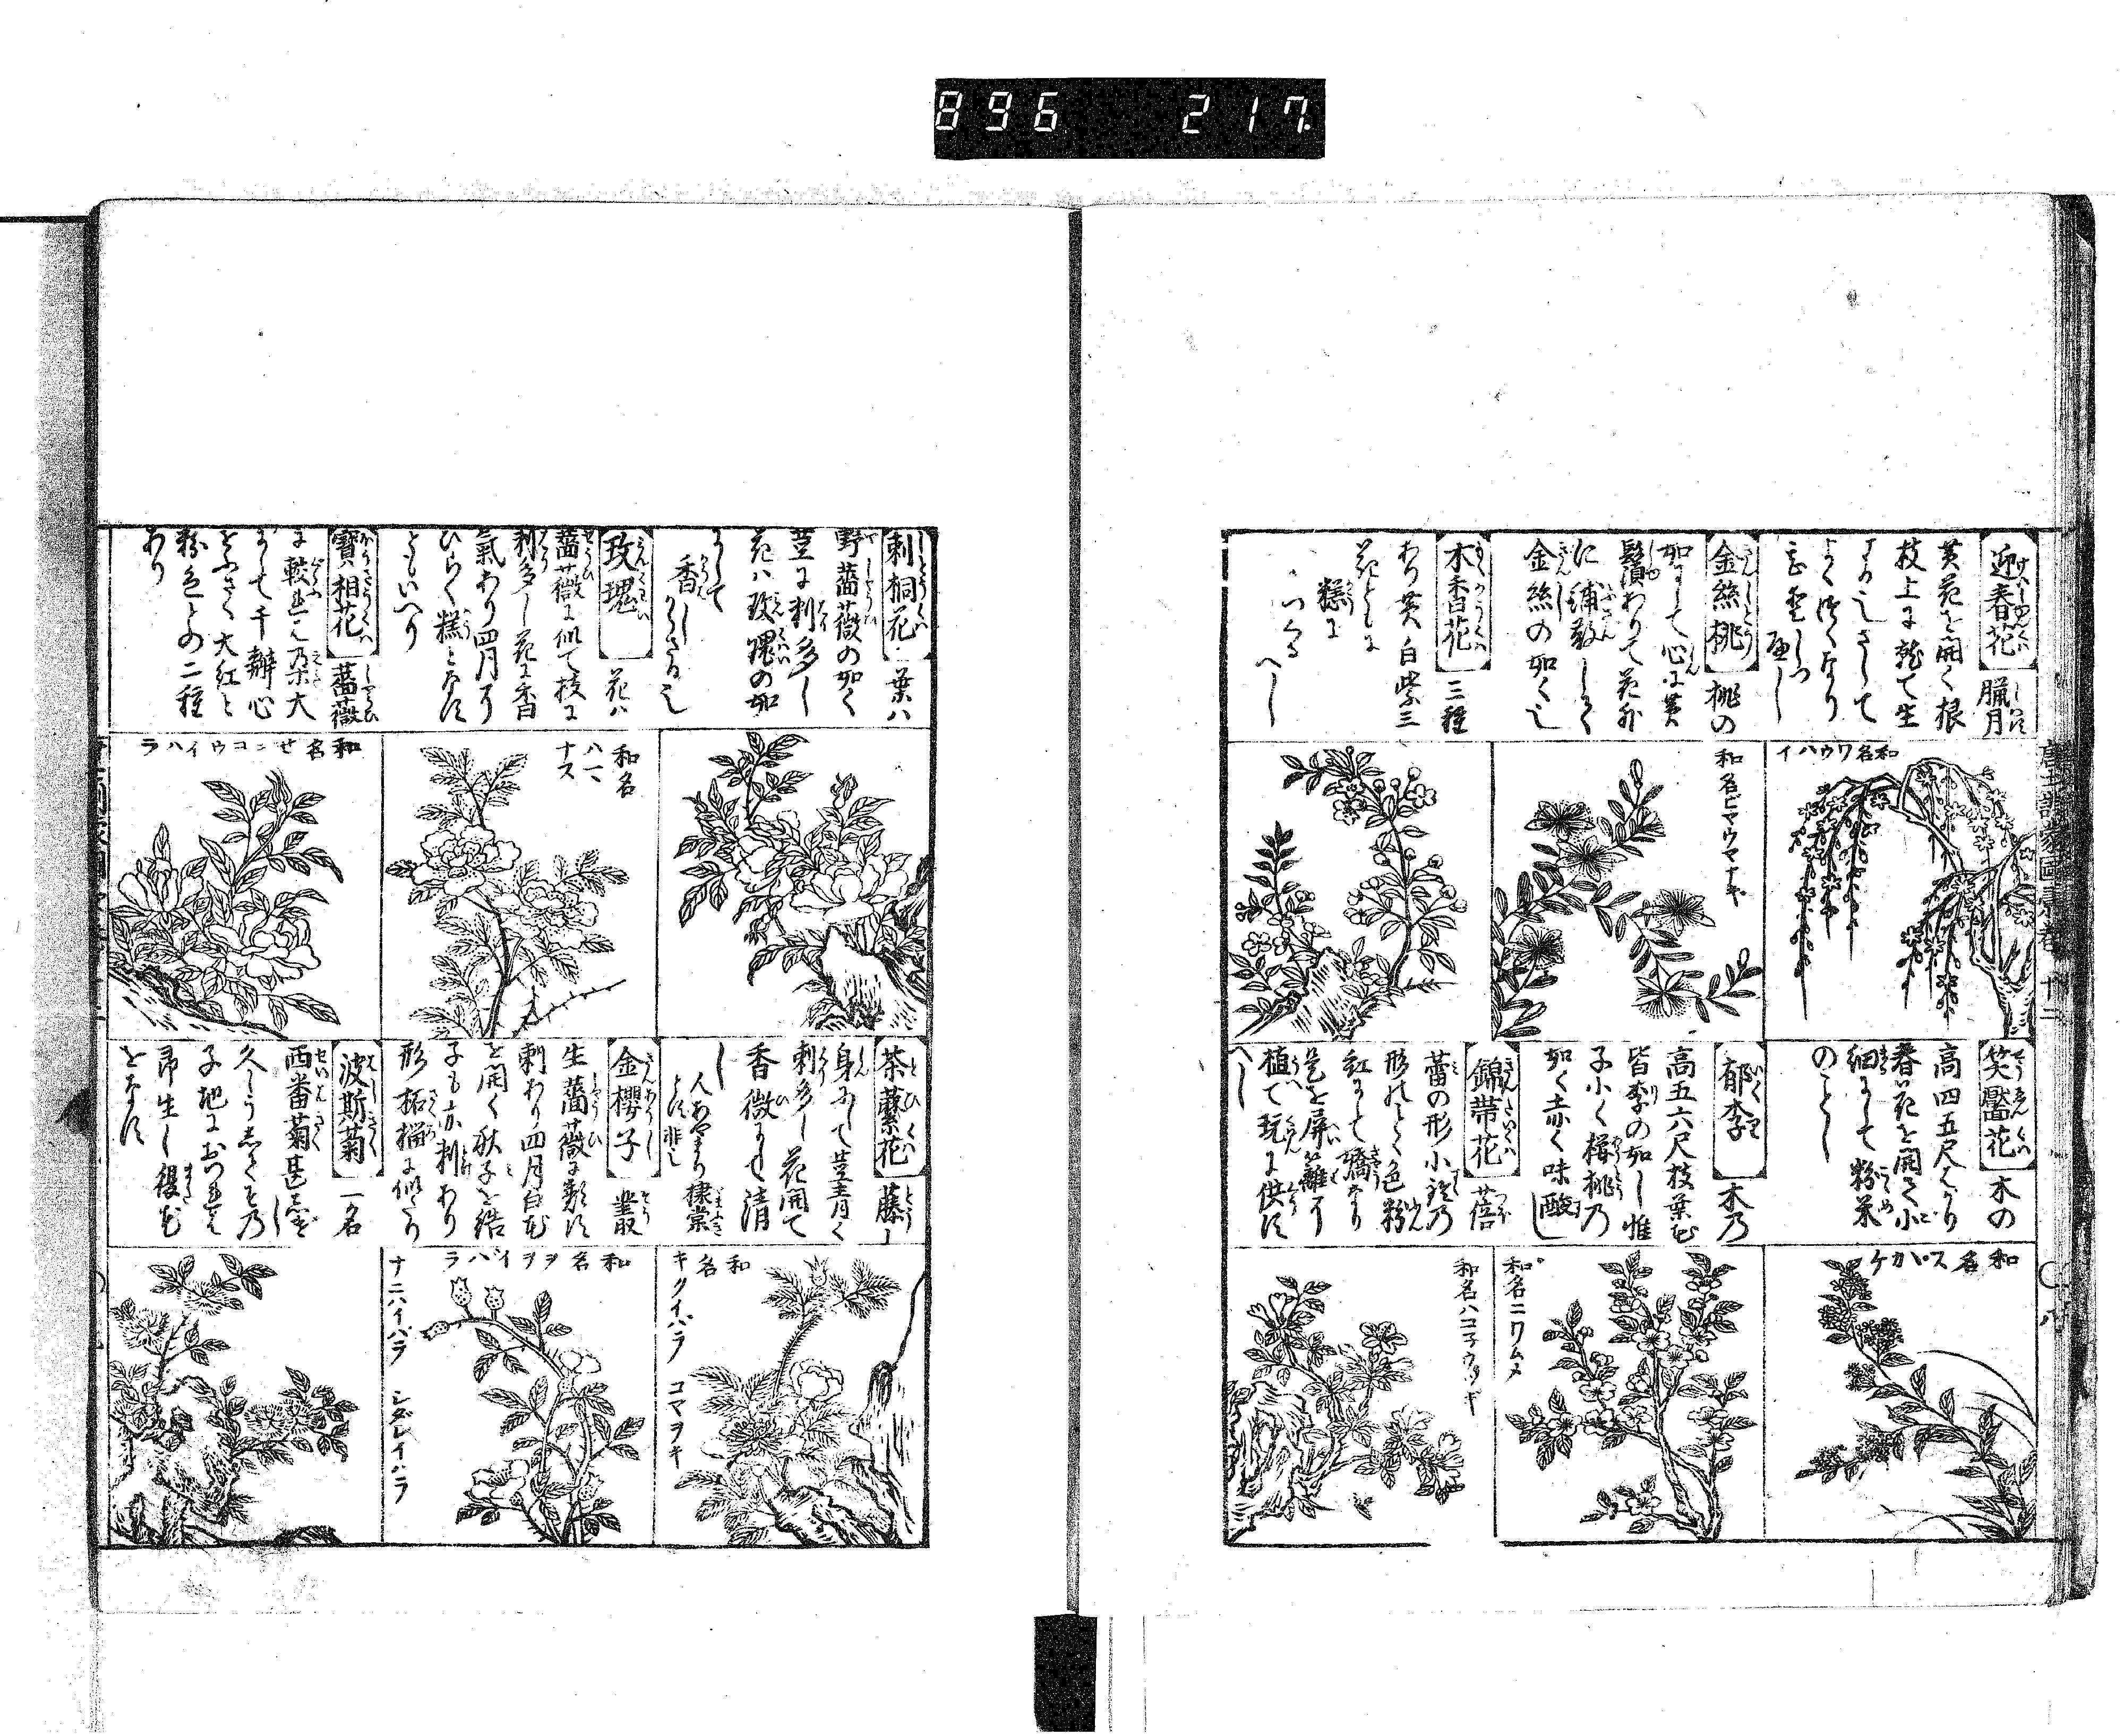 896 217
迎春花 臘月
黄花を開く根
枝上に就て生
金絲桃 桃の
如にして心に黄
鬚ありて花外
に鋪散しく
金絲の如く也
木香花 三種
あり黄白紫三
花ともに
糕に
つくる
へし
和名ワウハイ
和名ビヤウヤナギ
笑靨花 木の
高四五尺ばかり
春花を開く小
細にして粉米
のごとし
郁李 木乃
高五六尺枝葉花
皆李の如し惟
子小く桜桃乃
如く赤く味酸し
錦帯花 蓓
蕾の形小鈴乃
形のごとく色粉
紅にして嬌なり
是を屏籬に
植て玩に供す
へし
和名スヾカケ
和名ニワムメ
和名ハコネウツギ
唐土訓蒙圖彙巻十三
〇八
刺桐花 葉ハ
野薔薇の如く
莖に刺多し
花ハ玫瑰の如
にして
香からさる也
玫瑰 花ハ
薔薇に似て枝に
刺多し花に香
氣あり四月に
ひらく糕となす
ともいへり
寶相花 薔薇
に較ふれ乃朶大
にして千瓣心
をふさく大紅と
粉色との二種
あり
和名
ハマナス
和名センコウイハラ
荼蘼花 藤
身にして莖青く
刺多し花開て
香微にして清
し
人あやまり棣棠
とす非也
金櫻子 叢
生薔薇に類す
刺あり四月白花
を開く秋子を結
子も亦刺あり
形柘榴に似たり
波斯菊 一名
西番菊甚し
子地におつれは
即生し複花
をなす
和名
キクイバラ コマヲキ
和名ヲヲイバラ
ナニハイバラ シダレイハラ